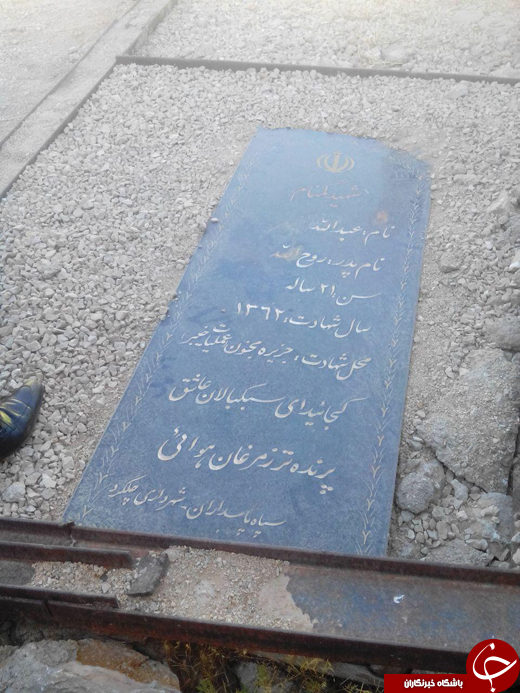 شهید گمنام
نام: عبدالله
نام پدر: روح الله
سن: ۲۱ ساله
سال شهادت: ۱۳۶۲
محل شهادت: جزیره مجنون عملیات خیبر
کجائید ای سبکبالان عاشق
پرنده تر ز مرغان هوائی
سپاه پاسداران شهرداری چلگرد
باشگاه خبرنگاران